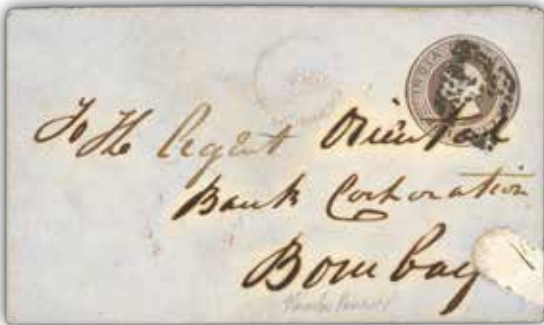 INDIA
To The Agent Oriental
Bank Corporation
Bombay